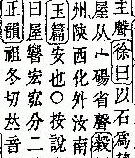 主聲徐曰以石爲
屋从宀碭省聲
州陝西化外汝南
玉篇安也○按說
曰屋響宏宖分二
正韻祖冬切𠀤音